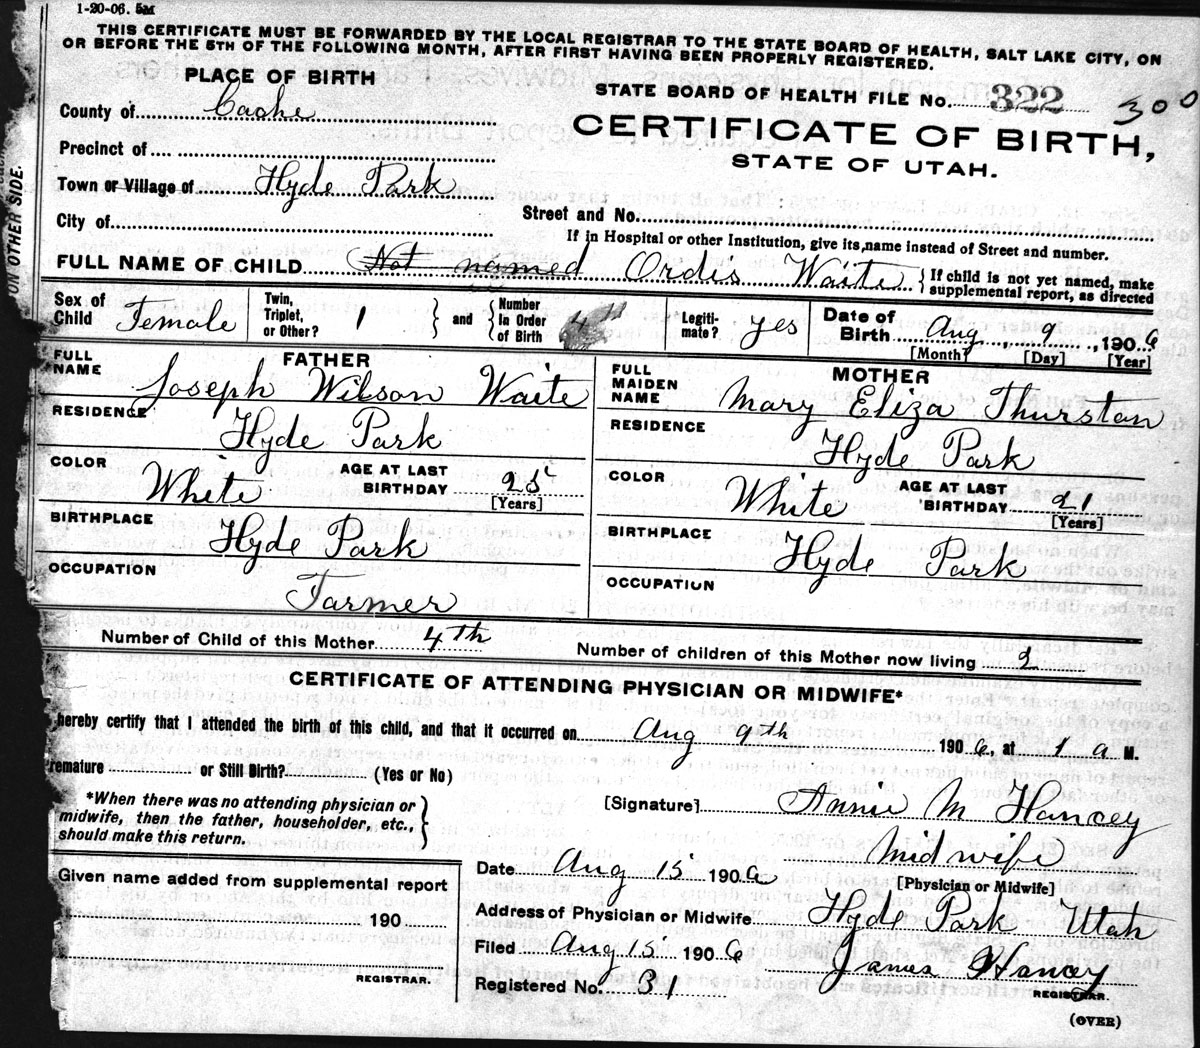 1-20-06. 5M
THIS CERTIFICATE MUST BE FORWARDED BY THE LOCAL REGISTRAR TO THE STATE BOARD OF HEALTH, SALT LAKE CITY, ON
OR BEFORE THE 5TH OF THE FOLLOWING MONTH, AFTER FIRST HAVING BEEN PROPERLY REGISTERED.
PLACE OF BIRTH
STATE BOARD OF HEALTH FILE NO. 322 300
County of Cache
CERTIFICATE OF BIRTH,
STATE OF UTAH.
Precinct of
Town or Village of Hyde Park
City of
Street and No.
If in Hospital or other Institution, give its name instead of Street and number.
FULL NAME OF CHILD Not named Ordis Waite } If child is not yet named, make
supplemental report, as directed
ON OTHER SIDE.
Sex of Child Female Twin, Triplet, or Other? 1 } and { Number In Order of Birth 4th Legiti-mate? yes Date of Birth Aug, 9, 1906
[Month] [Day] [Year]
FATHER
FULL NAME Joseph Wilson Waite
RESIDENCE Hyde Park
COLOR White AGE AT LAST BIRTHDAY 25
[Years]
BIRTHPLACE Hyde Park
OCCUPATION Farmer
MOTHER
FULL MAIDEN NAME Mary Eliza Thurston
RESIDENCE Hyde Park
COLOR White AGE AT LAST BIRTHDAY 21
[Years]
BIRTHPLACE Hyde Park
OCCUPATION
Number of Child of this Mother 4th Number of children of this Mother now living 2
CERTIFICATE OF ATTENDING PHYSICIAN OR MIDWIFE*
hereby certify that I attended the birth of this child, and that it occurred on Aug 9th 1906, at 1 a M.
remature or Still Birth? (Yes or No)
*When there was no attending physician or
midwife, then the father, householder, etc., }
should make this return.
[Signature] Annie M Hancey
Midwife
[Physician or Midwife]
Date Aug 15 1906
Address of Physician or Midwife Hyde Park Utah
Filed Aug 15 1906 James Hancey
REGISTRAR.
Registered No. 31
(OVER)
Given name added from supplemental report
190
REGISTRAR.